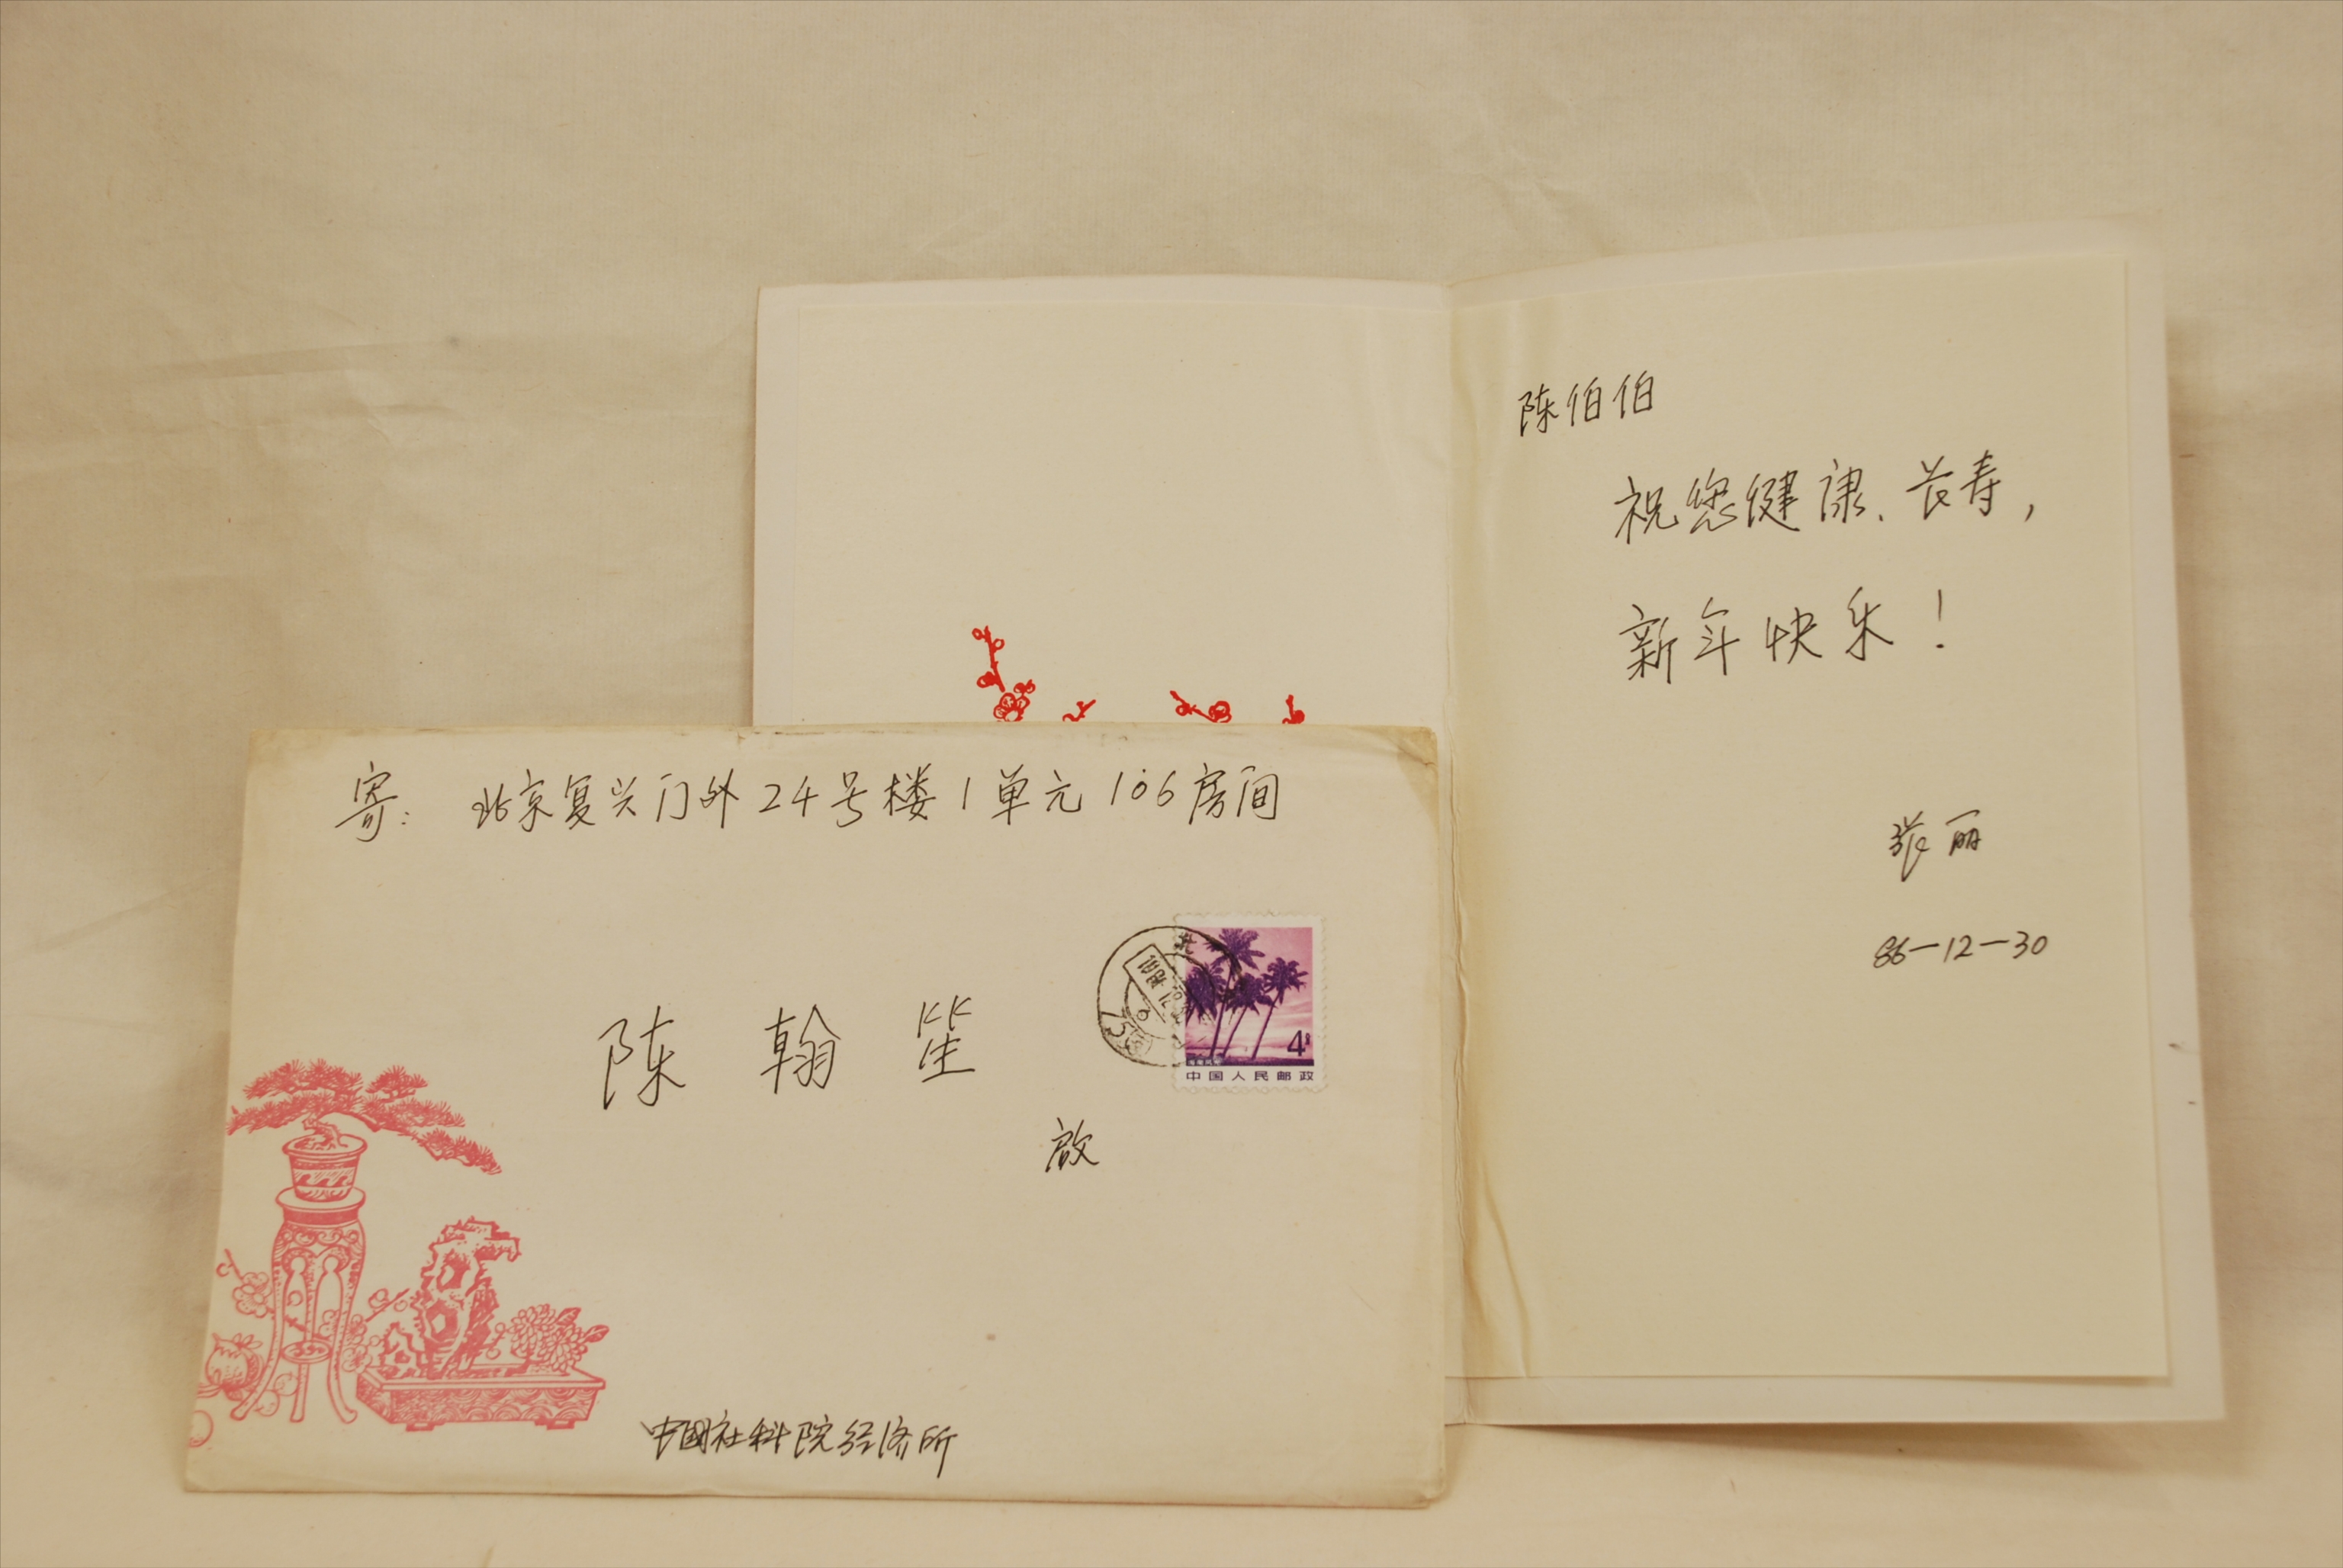 陈伯伯
祝您健康、长寿,
新年快乐!
张丽
86-12-30
寄: 北京复兴门外24号楼1单元106房间
陈翰笙
启
4分
中国人民邮政
中国社科院经济所